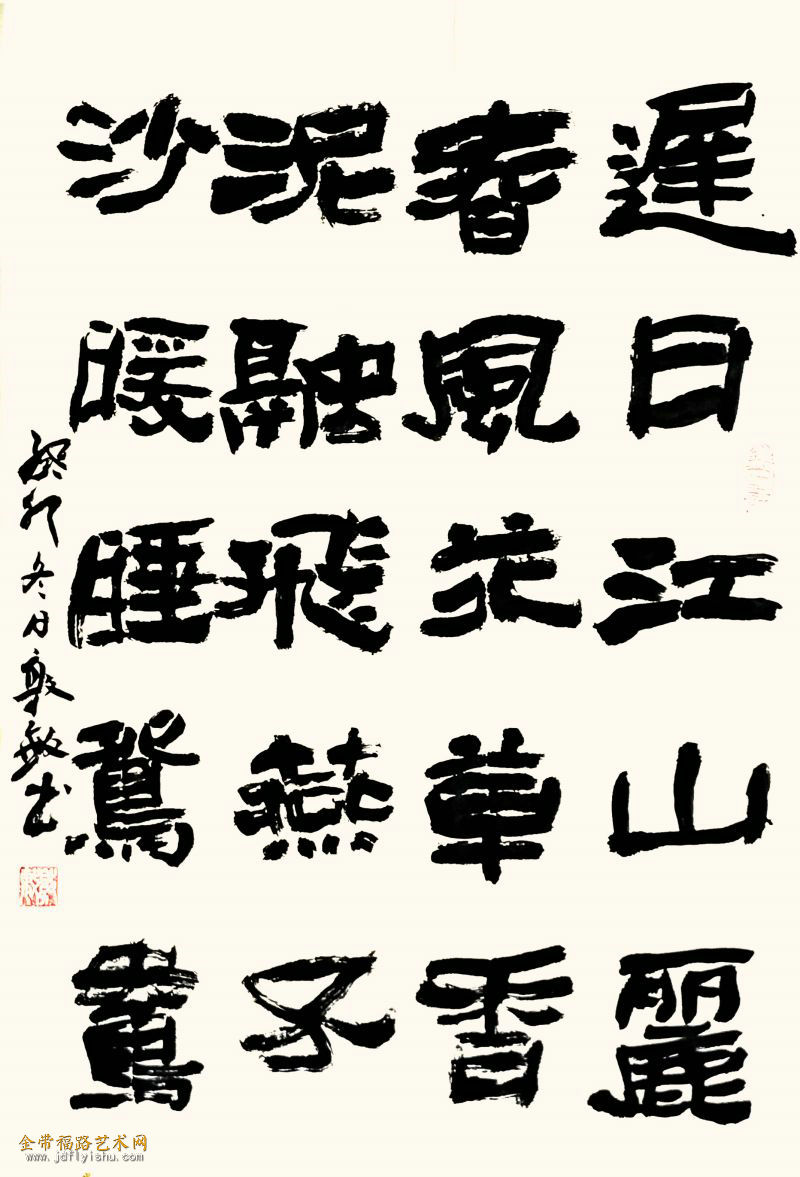 遲日江山麗
春風花草香
泥融飛燕子
沙暖睡鴛鴦
癸卯冬日敦敏书
金带福路艺术网
www.jdflyishu.com